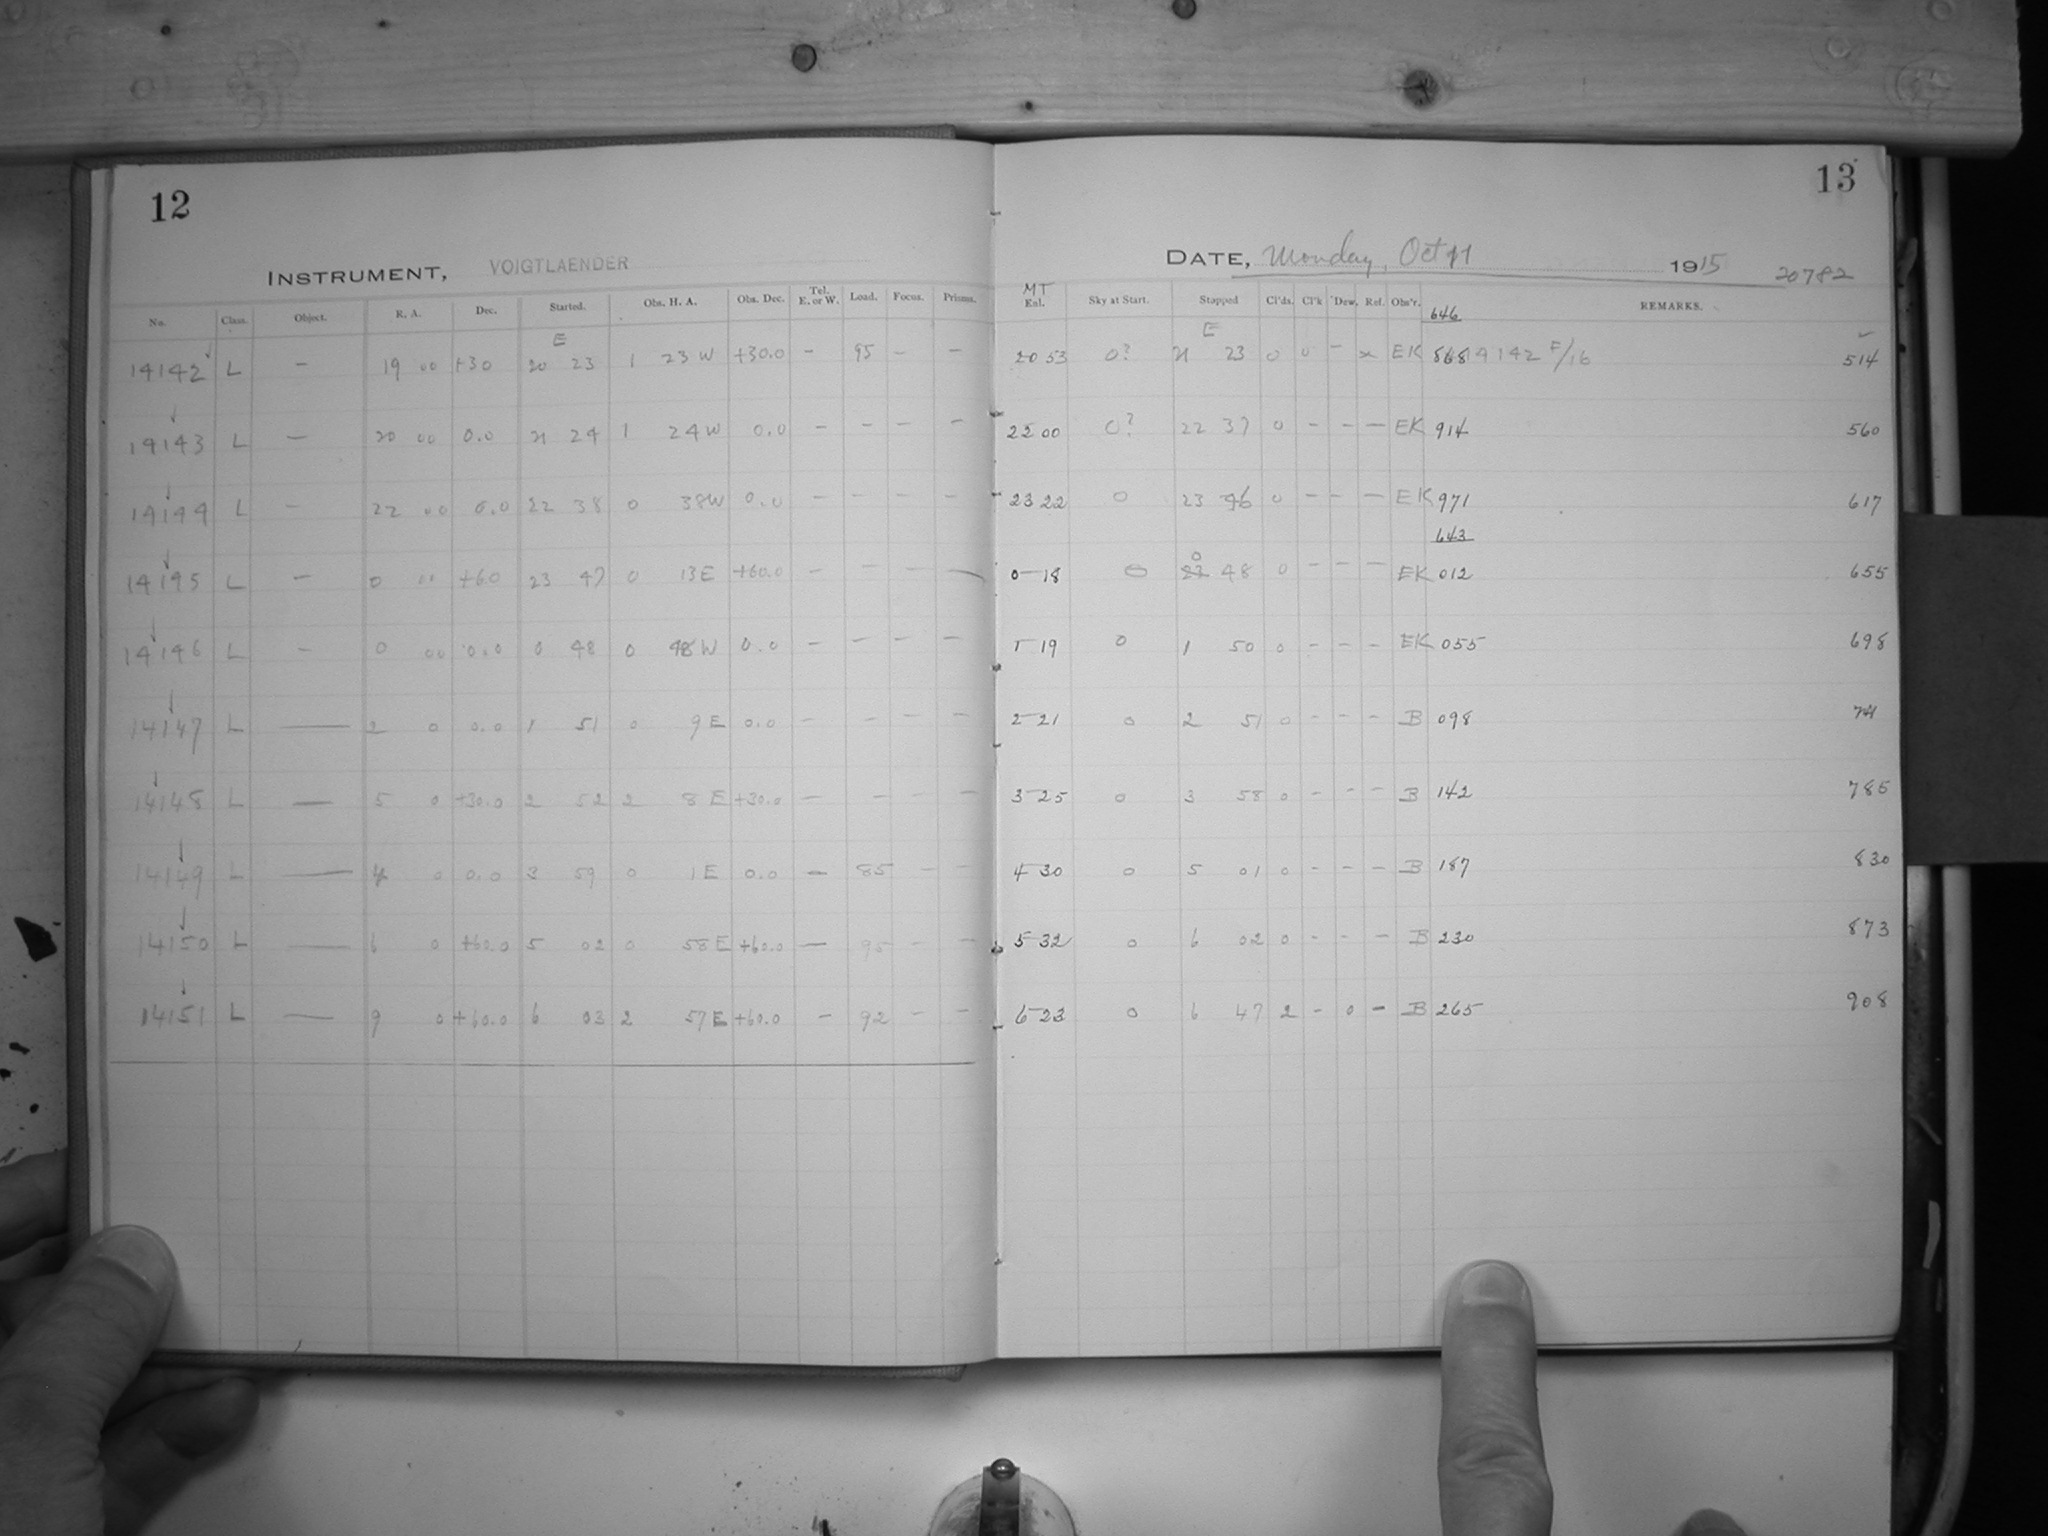 12
INSTRUMENT, VOIGTLAENDER
No. Class. Object. R. A. Dec. Started. Obs. H. A. Obs. Dec. Tel. E. or W. Load. Focus. Prisms.
E
14142 L — 19 00 +30 20 23 1 23 W +30.0 – 95 – –
14143 L — 20 00 0.0 21 24 1 24 W 0.0 – – – –
14144 L – 22 00 0.0 22 38 0 38 W 0.0 – – – –
14145 L – 0 00 +60 23 47 0 13 E +60.0 – – – –
14146 L – 0 00 0.0 0 48 0 48 W 0.0 – – – –
14147 L — 2 0 0.0 1 51 0 9 E 0.0 – – – –
14148 L — 5 0 +30.0 2 52 2 8 E +30.0 – – – –
14149 L — 4 0 0.0 3 59 0 1 E 0.0 – 85 – –
14150 L — 6 0 +60.0 5 02 0 58 E +60.0 — 95 – –
14151 L — 9 0 +60.0 6 03 2 57 E +60.0 – 92 – –
13
DATE, Monday, Oct 11 1915
20782
MT
Enl. Sky at Start. Stopped Cl'ds. Cl'k Dew. Ref. Obs'r. REMARKS.
646
E
20 53 0? 21 23 0 0 – x EK 868 14142 F/16 514
22 00 0? 22 37 0 – – – EK 914 560
23 22 0 23 46 0 – – – EK 971 617
643
0
0 18 0 23 48 0 – – – EK 012 655
1 19 0 1 50 0 – – – EK 055 698
2 21 0 2 51 0 – – – B 098 741
3 25 0 3 58 0 – – – B 142 785
4 30 0 5 01 0 – – – B 187 830
5 32 0 6 02 0 – – – B 230 873
6 23 0 6 47 2 – 0 – B 265 908